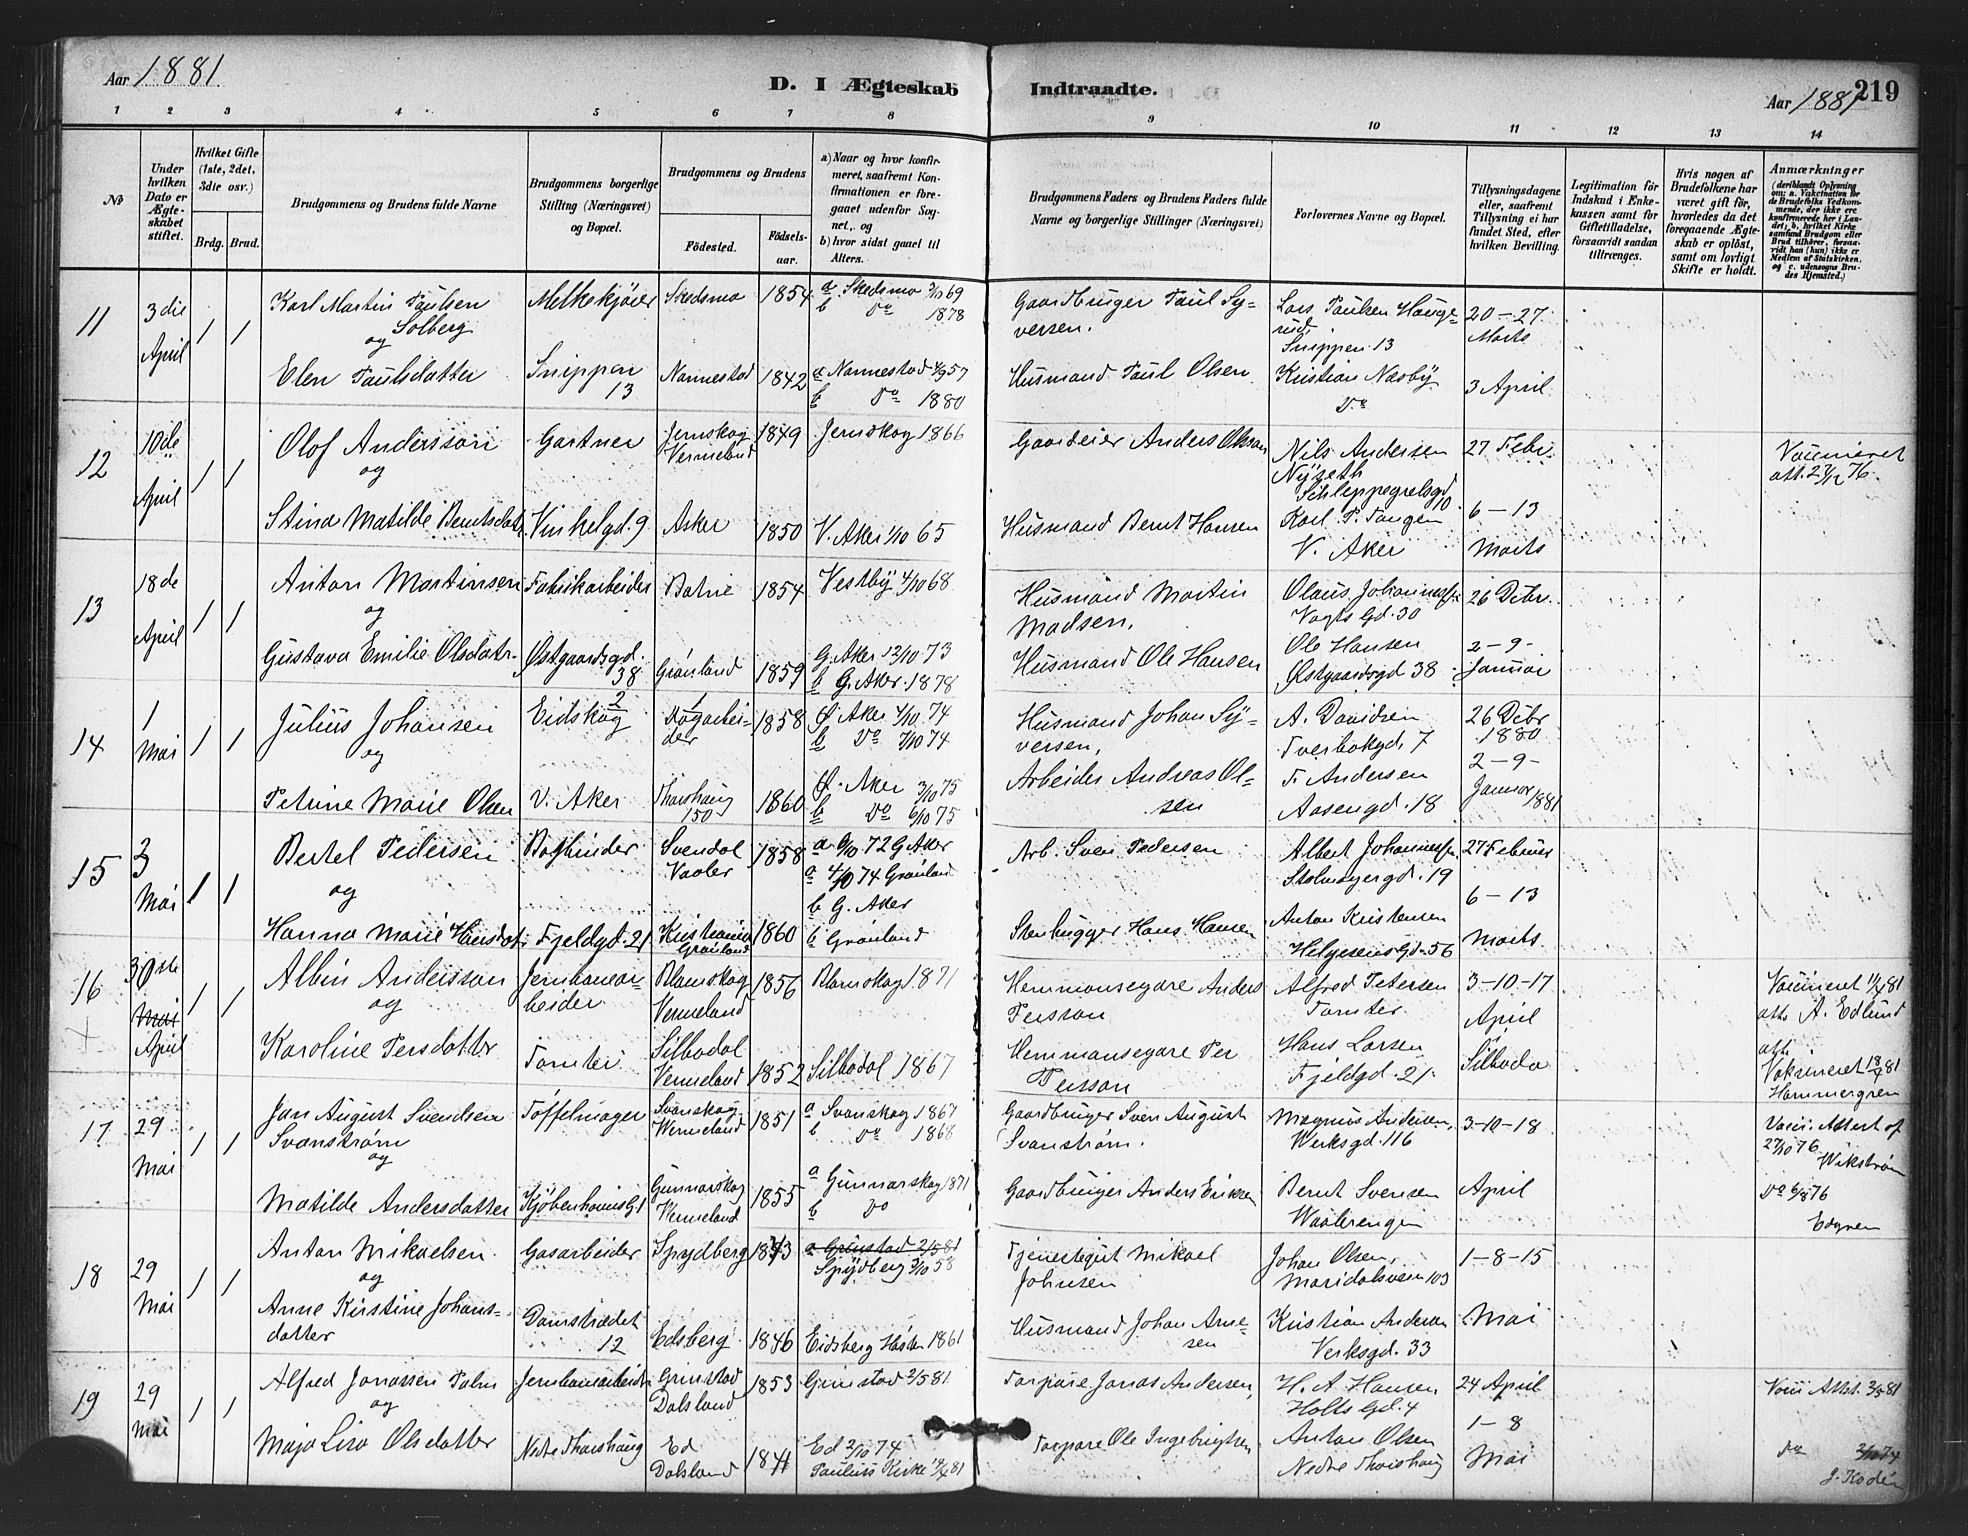 Aar 1881
D. I Ægteskab Indtraadte.
Aar 1881 219
1 2 3 4 5 6 7 8 9 10 11 12 13 14
No
Under hvilken Dato er Ægteskabet stiftet.
Hvilket Gifte (1ste, 2det, 3die osv.)
Brdg. Brud.
Brudgommens og Brudens fulde Navne
Brudgommens borgerlige Stilling (Næringsvei) og Bopæl.
Brudgommens og Brudens
Födested. Födsels-aar.
a) Naar og hvor konfirmeret, saafremt Konfirmationen er foregaaet udenfor Sognet, og
b) hvor sidst gaaet til Alters.
Brudgommens Faders og Brudens Faders fulde Navne og borgerlige Stillinger (Næringsvei)
Forlovernes Navne og Bopæl.
Tillysningsdagene eller, saafremt Tillysning ei har fundet Sted, efter hvilken Bevilling.
Legitimation for Indskud i Enkekassen samt for Giftetilladelse, forsaavidt saadan tiltrænges.
Hvis nogen af Brudefolkene har været gift för, hvorledes da det foregaaende Ægteskab er oplöst, samt om lovligt Skifte er holdt.
Anmærkninger
(deriblandt Oplysning om: a. Vaccination for de Brudefolks Vedkommende, der ikke ere konfirmerede her i Landet; b. hvilket Kirkesamfund Brudgom eller Brud tilhörer, forsaavidt han (hun) ikke er Medlem af Statskirken, og c. udensogns Brudes Hjemsted.)
11 3die April 1 1 Karl Martin Paulsen Solberg Melkekjører Skedsmo 1854 a Skedsmo 3/10 69
b Do 1878
Gaardbruger Paul Syversen.
Lars Paulsen Haugerud, Snippen 13
20-27 Marts
og
Elen Paulsdatter Snippen 13 Nannestad 1842 a Nannestad 4/9 57
b Do 1880
Husmand Paul Olsen Kristian Næsby Do 3 April
12 10de April 1 1 Olof Andersson Gartner Jernskog Vermeland 1849 Jernskog 1866
Gaardeier Anders Olsson Nils Andersen Nyseth Schleppegrelsgd 10 27 Febr.
Vaccineret att. 27/12 76.
og
Stina Matilde Berntsdatr. Vinkelgd. 9 Aker 1850 V. Aker 1/10 65
Husmand Bernt Hansen Karl P. Tangen V. Aker 6-13 Marts
13 18de April 1 1 Anton Martinsen Fabrikarbeider 1854 Vestby 4/10 68
Husmand Martin Madsen. Olaus Johannessen Vogts Gd. 30 26 Debr.
og
Gustava Emilie Olsdatr. Østgaardsgd. 38 Grønland 1859 G. Aker 12/10 73
b G. Aker 1878
Husmand Ole Hansen Ole Hansen Østgaardsgd 38 2-9- Januar
14 1 Mai 1 1 Julius Johansen Eidskog 1858 Ø. Aker 4/10 74
b Do 7/10 74
Husmand Johan Syversen, A. Davidsen Tverbakgd. 7 26 Debr 1880
og
Petrine Marie Olsen V. Aker Thorshaug 150 1860 Ø. Aker 3/10 75
b Do 6/10 75
Arbeider Andreas Olsen F. Andersen Aasengd. 18 2-9- Januar 1881
15 3 Mai 1 1 Bertel Pedersen Bogbinder Svendal Vaaler 1858 a 6/10 72 G Aker
a 4/10 74 Grønland
b G. Aker
Arb. Sven Pedersen Albert Johannessen Stolmagergd. 19 27 Februar
og
Hanna Marie Hansdat. Fjeldgd. 21 Kristiania Grønland 1860 b Grønland
Stenhugger Hans Hansen Anton Kristensen Helgesensgd. 56 6-13 Marts
16 30te Mai April 1 1 Albin Andersson Jernbanearbeider Blomskog Vermeland 1856 Blomskog 1871
Hemmansegare Anders Persson Alfred Petersen Tomter 3-10-17 April
Vaccineret 11/4 81 att. A. Edlund
og
Karoline Persdatter Tomter Silbodal Vermeland 1852 Silbodal 1867
Hemmansegare Per Persson Hans Larsen Fjeldgd. 21. Silboda
att. Vaksineret 18/4 81 Hammergren
17 29 Mai 1 1 Jan August Svendsen Svanstrøm Tøffelmager Svanskog Wermeland 1851 a Svanskog 1867
b do 1868
Gaardbruger Sven August Svanstrøm. Magnus Andersen, Werksgd. 116 3-10-18
Vacci. Attest af 27/10 76 Wikstrøm
og
Matilde Andersdatter Kjøbenhavns G. 1 Gunnarskog Vermeland 1855 a Gunnarskog 1871
b Do
Gaardbruger Anders Eriksen Bernt Svensen Waalerengen April
Do 6/8 76
18 29 Mai 1 1 Anton Mikaelsen Gasarbeider Spydberg 1843 a Grinstad 2/5 81
Spydberg 3/10 58
Tjenestegut Mikael Johnsen Johan Olsen, Maridalsveien 103 1-8-15
og
Anne Kirstine Johansdatter Damstrædet 12 Edsberg 1846 Eidsberg Høsten 1861
Husmand Johan Arnesen Kristian Andersen Verksgd. 33 Mai
19 29 Mai 1 1 Alfred Jonassen Palm Jernbanearbeider Grinstad Dalsland 1853 Grinstad 2/5 81
Torpare Jonas Andersen, H. A. Hansen Holts Gd. 4 24 April
Vacci Attst. 2/5 81
og
Maja Lisa Olsdatter Nedre Thorshaug Ed Dalsland 1841 Ed 2/10 74
Paulus Kirke 14/4 81
Torpare Ole Ingebrigtsen Anton Olsen Nedre Thorshaug 1-8 Mai
Do 2/10 74
J. Kodén